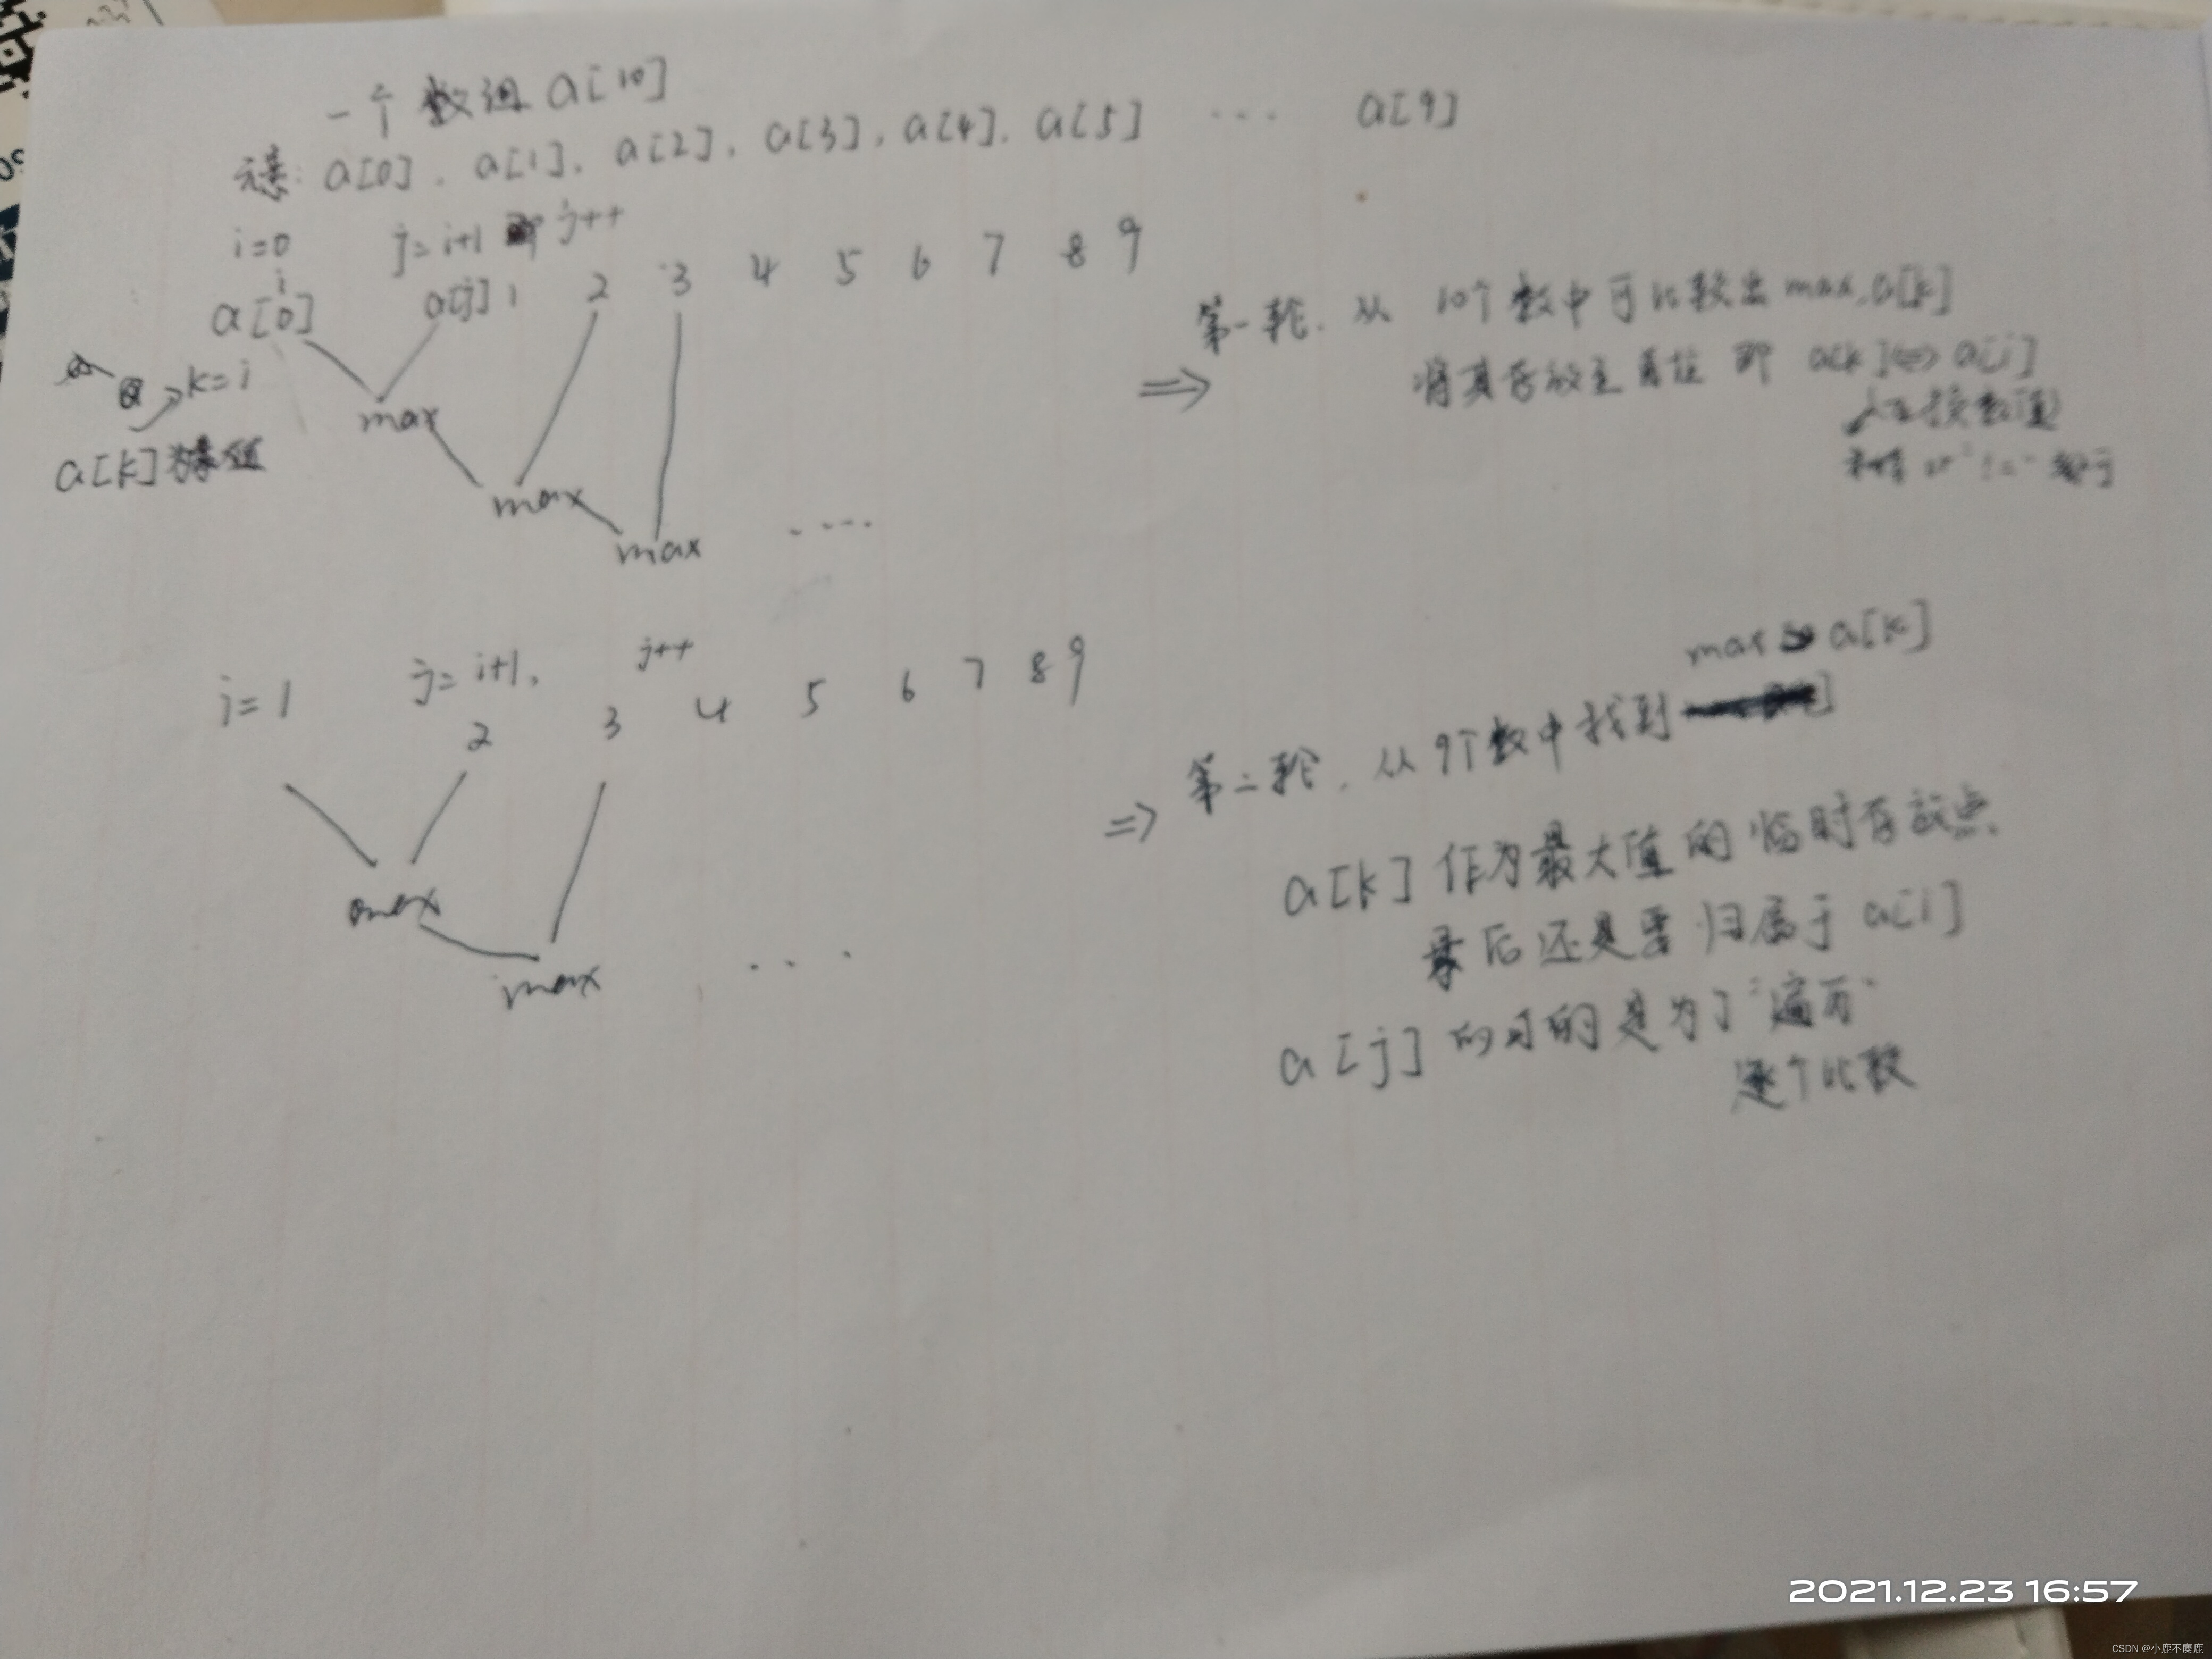 一个数组 a[10]
元素: a[0]. a[1]. a[2]. a[3], a[4]. a[5] ... a[9]
i=0 j=i+1 即 j++
i
a[0] a[j] 1 2 3 4 5 6 7 8 9
k=i
a[k]
max
max
max ....
⇒ 第一轮. 从 10个数中可比较出max.a[k]
将其存放至首位 即 a[k]⇔a[i]
互换数值
i=1 j=i+1, j++
2 3 4 5 6 7 8 9
max
max ...
max a[k]
⇒ 第二轮. 从9个数中找到
a[k] 作为最大值的临时存放点
最后还是要归属于 a[i]
a[j] 的目的是为了"遍历"
逐个比较
2021.12.23 16:57
CSDN @小鹿不麋鹿